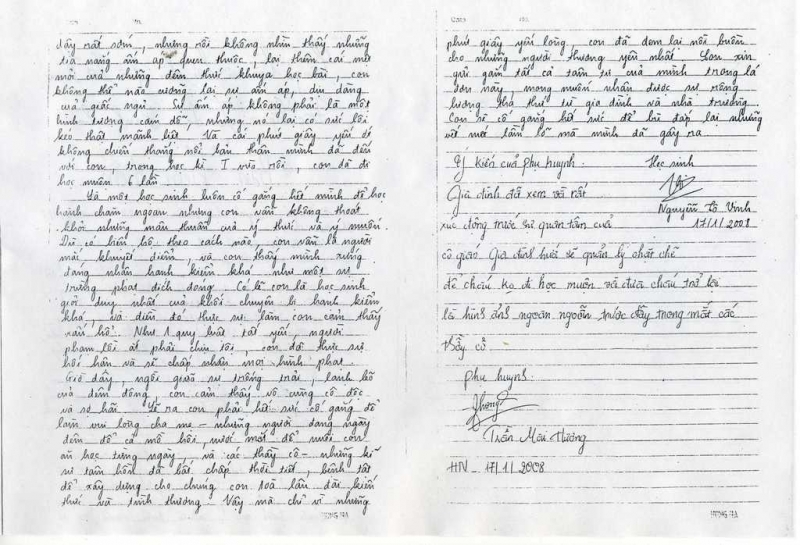 dậy rất sớm, nhưng rồi không nhìn thấy những
tia nắng ấm áp quen thuộc, lại thêm cái mệt
mỏi của những đêm thức khuya học bài, con
không thể nào cưỡng lại sự ấm áp, dịu dàng
của giấc ngủ. Sự ấm áp không phải là một
hình tượng cám dỗ, nhưng nó lại có sức lôi
kéo thật mãnh liệt. Và cái phút giây yếu đi
không chiến thắng nổi bản thân mình đã đến
với con, trong học kì I vừa rồi, con đã đi
học muộn 6 lần.
Là một học sinh luôn cố gắng hết mình để học
hành chăm ngoan nhưng con vẫn không thoát
khỏi những mâu thuẫn của ý thức và ý muốn.
Dù có biện hộ theo cách nào, con vẫn là người
mắc khuyết điểm, và con thấy mình xứng
đáng nhận hạnh kiểm khá như một sự
trừng phạt đích đáng. Có lẽ con là học sinh
giỏi duy nhất của khối chuyên bị hạnh kiểm
khá, và điều đó thực sự làm con cảm thấy
xấu hổ. Như 1 quy luật tất yếu, người
phạm lỗi ắt phải chịu tội, con đã thực sự
hối hận và sẽ chấp nhận mọi hình phạt.
Giờ đây, ngồi giữa sự trống trải, lạnh lẽo
của đêm đông, con cảm thấy vô cùng cô độc
và sợ hãi. Lẽ ra con phải hết sức cố gắng để
làm vui lòng cha mẹ - những người đang ngày
đêm đổ cả mồ hôi, nước mắt để nuôi con
ăn học từng ngày, và các thầy cô - những kĩ
sư tâm hồn đã bất chấp thời tiết, bệnh tật
để xây dựng cho chúng con toà lâu đài kiến
thức và tình thương. Vậy mà chỉ vì những
phút giây yếu lòng, con đã đem lại nỗi buồn
cho những người thương yêu nhất. Con xin
gửi gắm tất cả tâm tư của mình trong lá
đơn này, mong muốn nhận được sự rộng
lượng tha thứ từ gia đình và nhà trường.
Con sẽ cố gắng hết sức để bù đắp lại những
vết mà mình đã gây ra.
Ý kiến của phụ huynh. Học sinh
Gia đình đã xem và rất
Nguyễn Tô Vinh
xúc động trước sự quan tâm của 17/1/2008
cô giáo. Gia đình hứa sẽ quản lý chặt chẽ
để cháu ko đi học muộn và đưa cháu trở lại
là hình ảnh ngoan ngoãn trước đây trong mắt các
thầy cô
phụ huynh.
Trần Mai Hương
HN - 17/1/2008